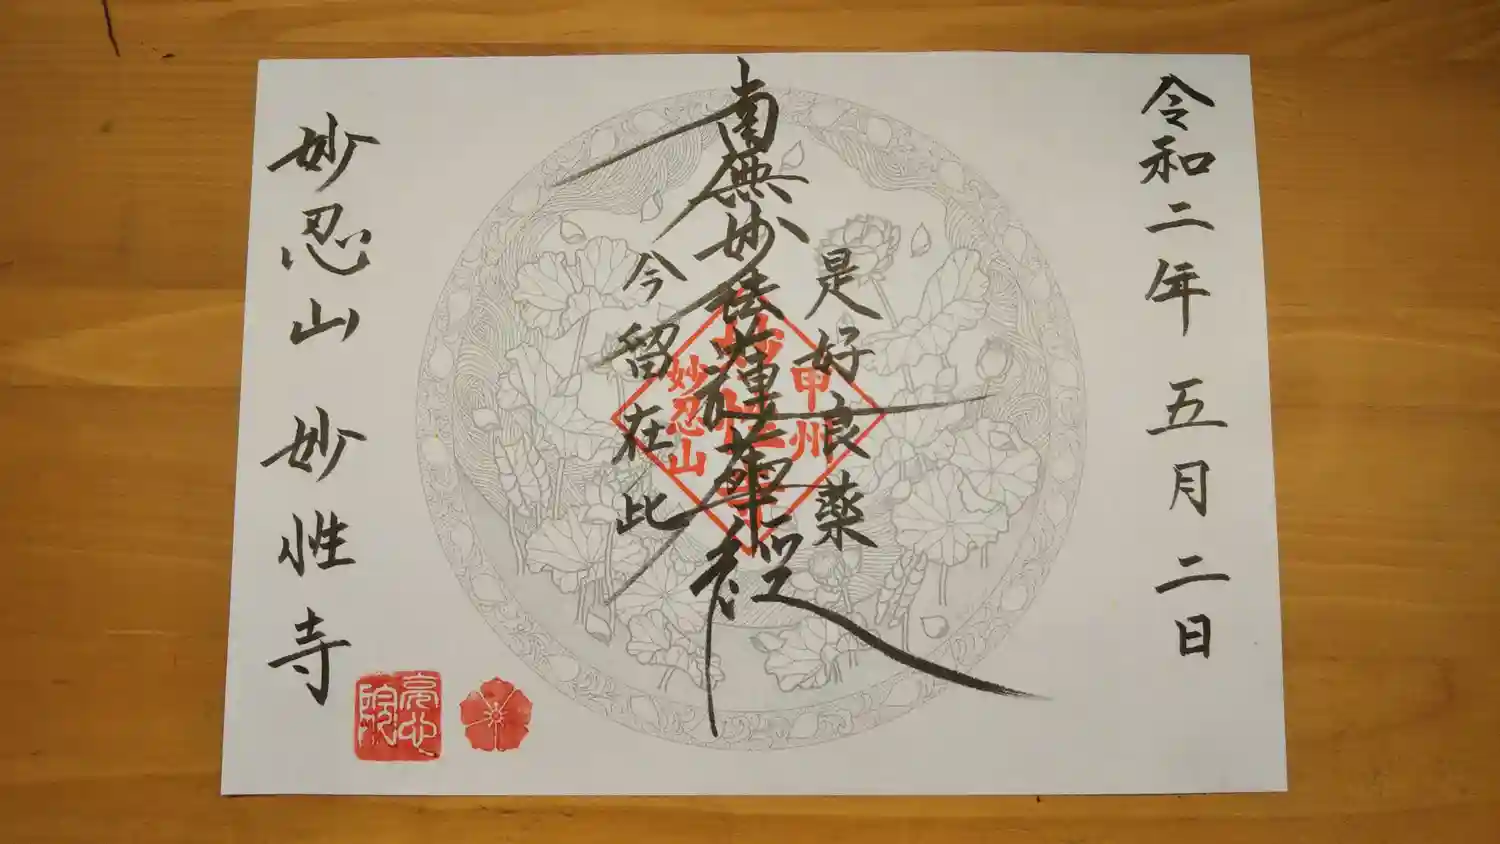 令和二年 五月二日
是好良薬
南無妙法蓮華経
今留在此
甲州
妙性寺
妙忍山
妙忍山 妙性寺